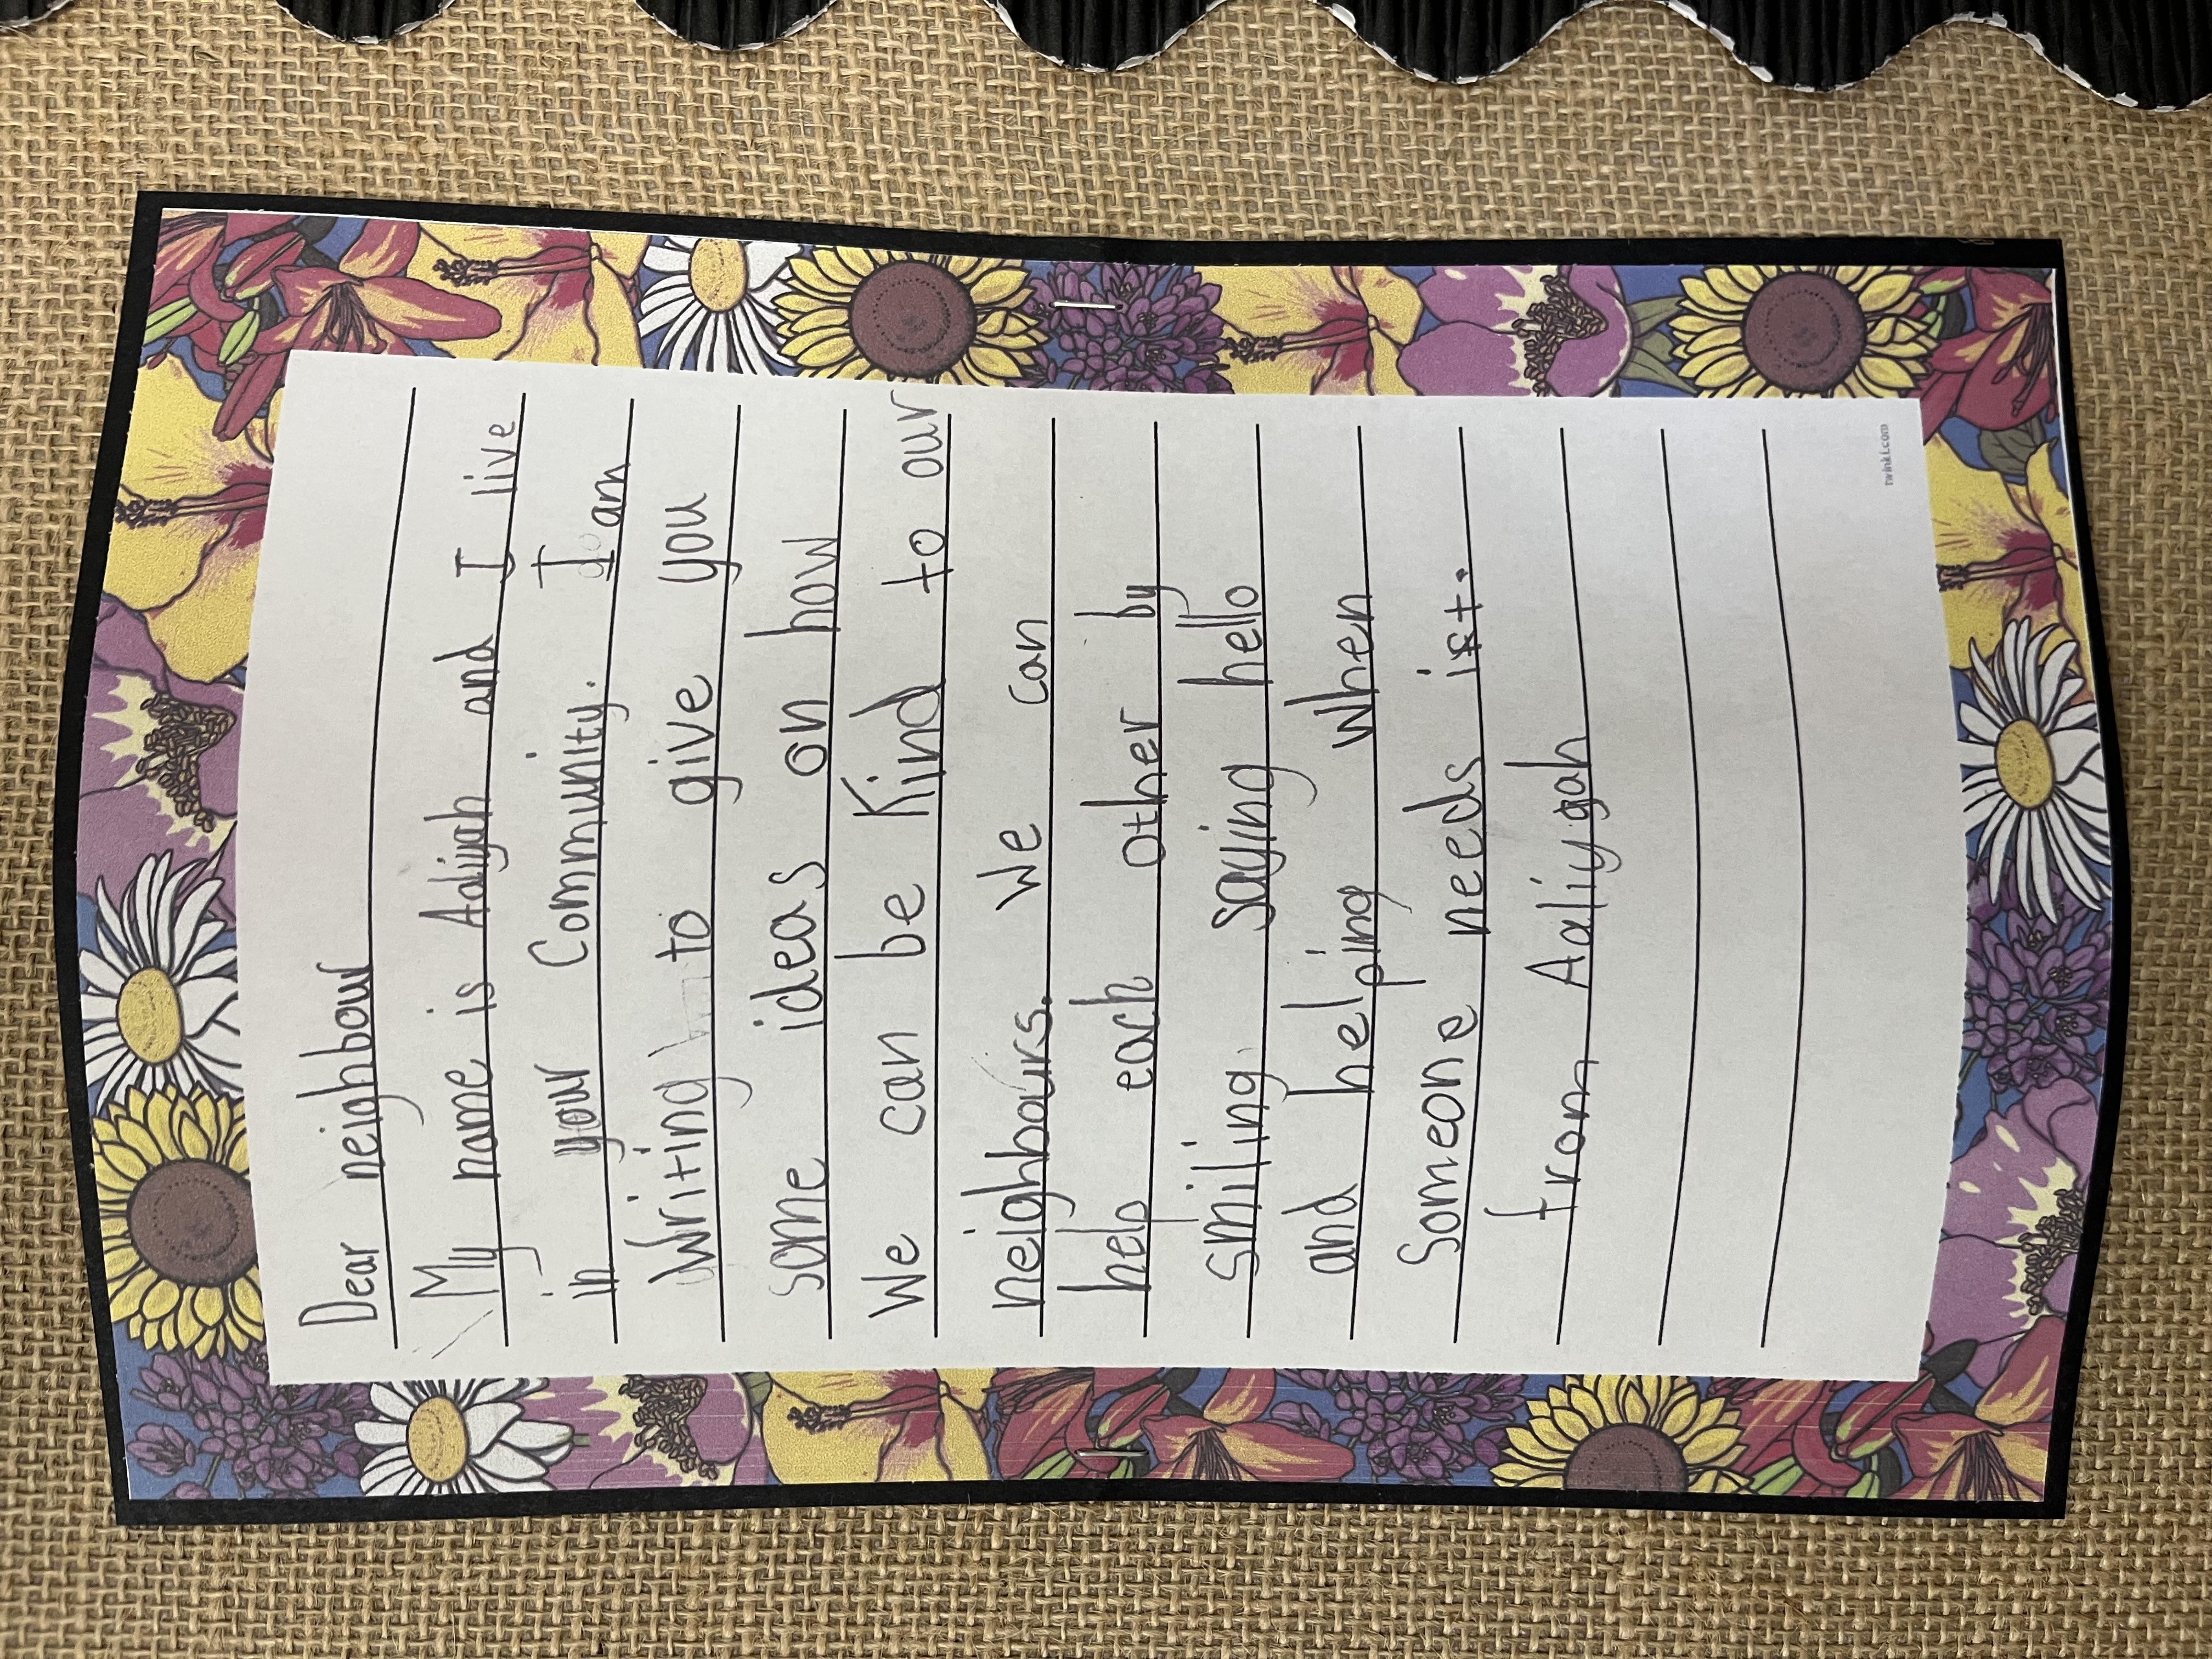 Dear neighbour
My name is Adiyah and I live
in your Community. I am
Writing to give you
some ideas on how
We can be Kind to our
neighbours. We can
help each other by
smiling saying hello
and helping when
Someone needs it.
from Aaliyah
twinkl.com